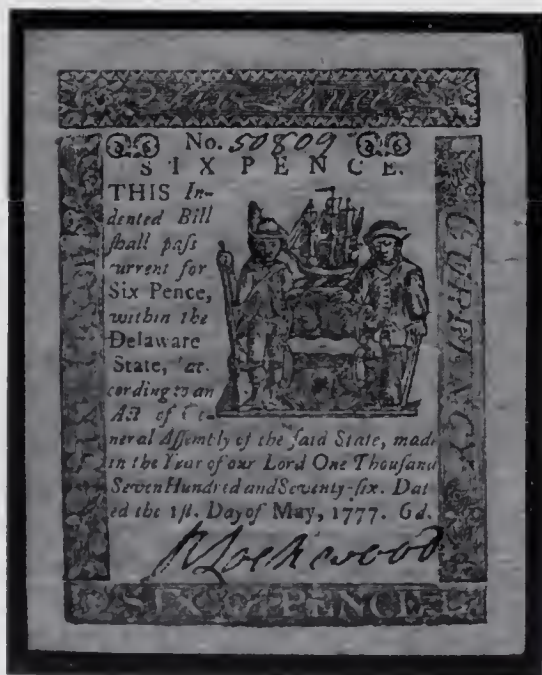 No. 50809
SIX PENCE.
THIS In-
dented Bill
ſhall paſs
current for
Six Pence,
within the
Delaware
State, ac-
cording to an
Act of Ge-
neral Aſſembly of the ſaid State, made
in the Year of our Lord One Thouſand
Seven Hundred and Seventy-ſix. Dat-
ed the 1ſt. Day of May, 1777. 6d.
CURRENCY
SIX PENCE